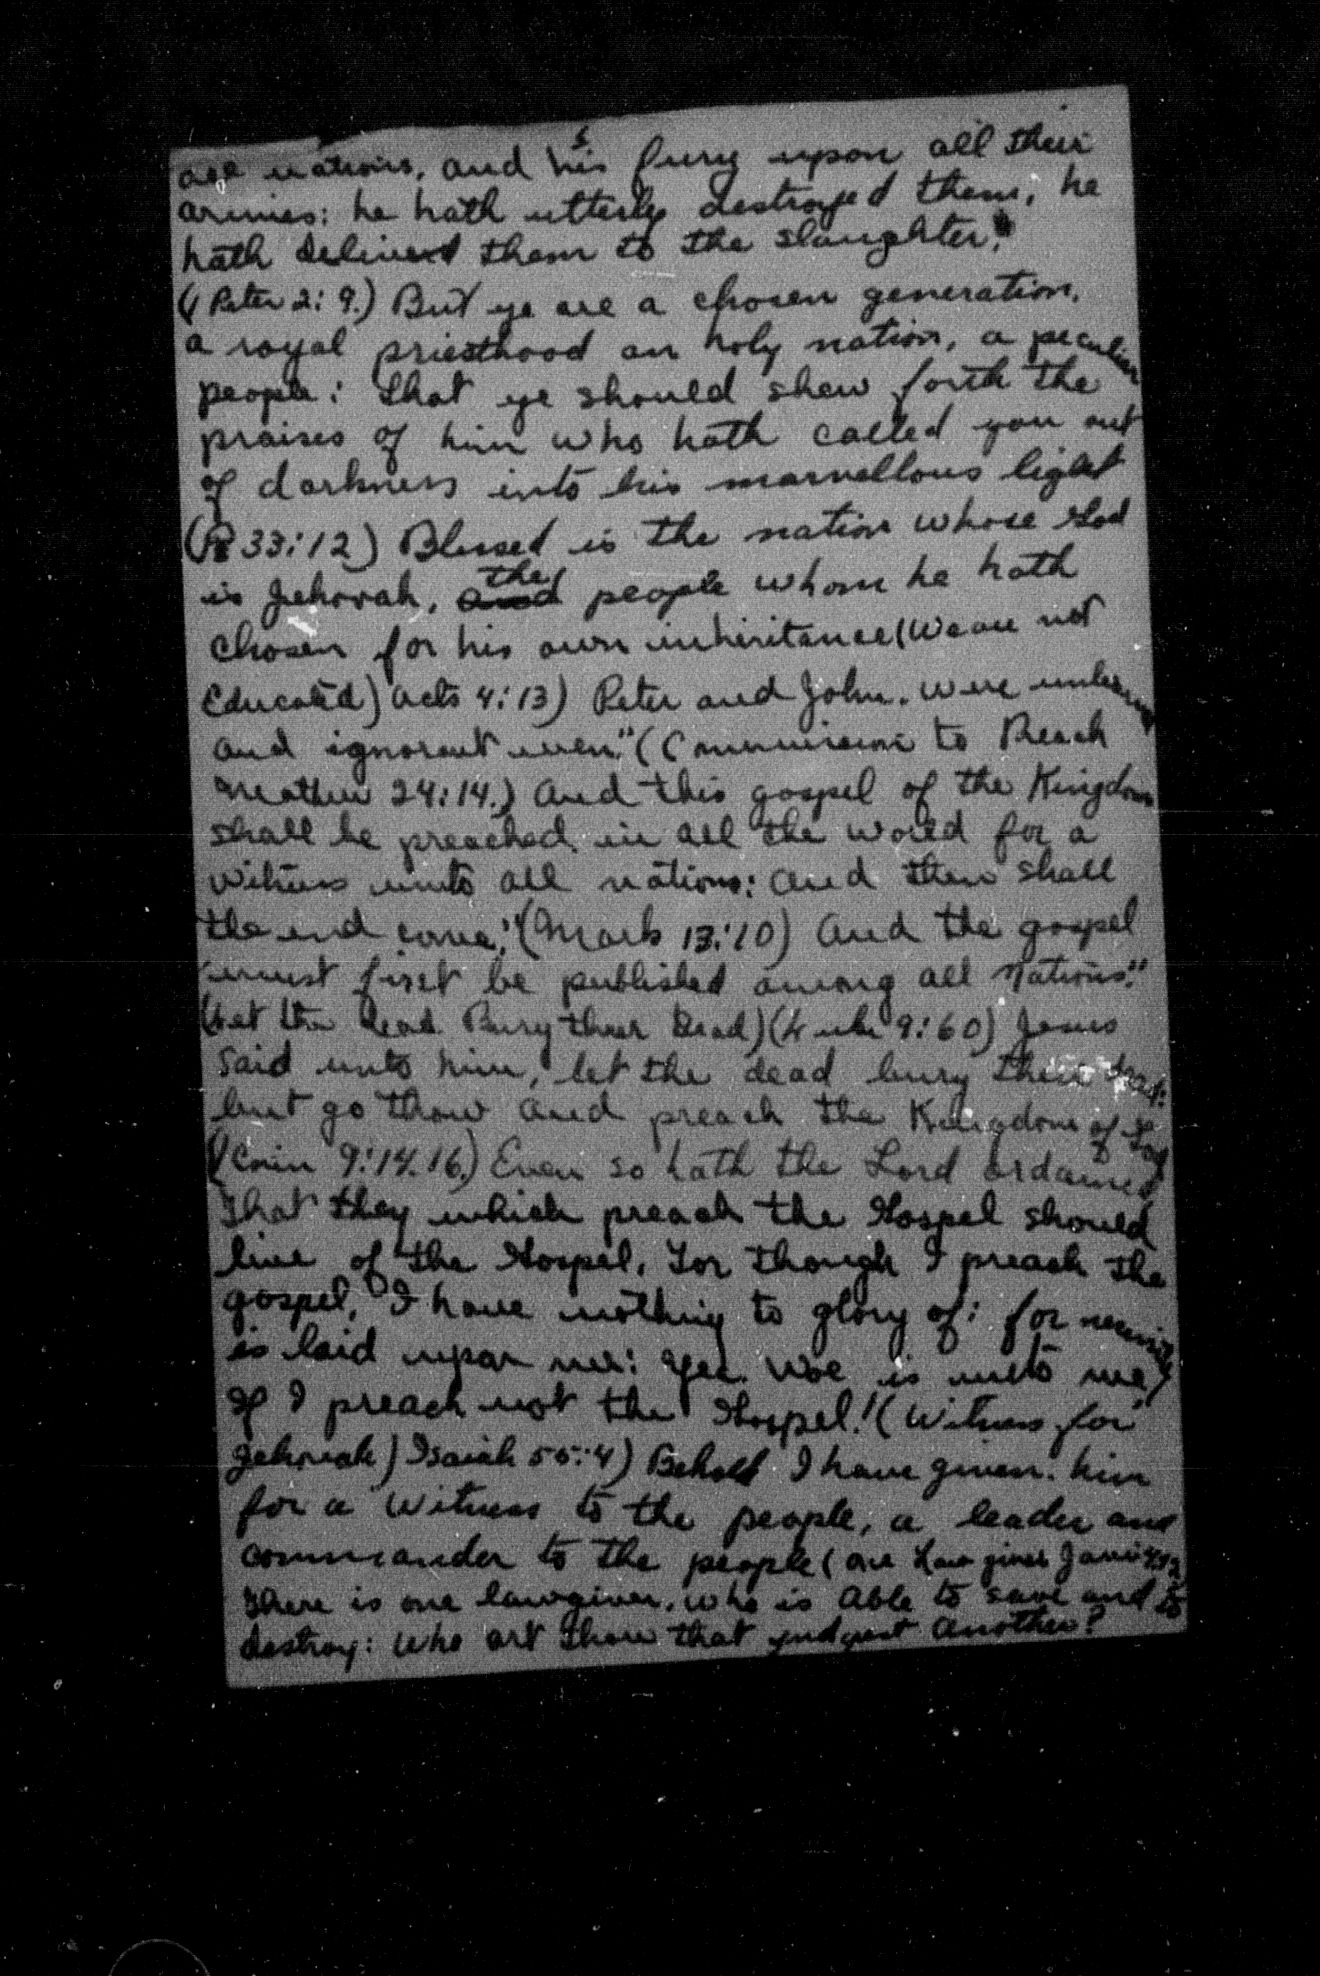 all nations, and his fury upon all their
armies: he hath utterly destroyed them, he
hath delivered them to the slaughter."
(1 Peter 2:9.) But ye are a chosen generation,
a royal priesthood an holy nation, a peculiar
people: that ye should shew forth the
praises of him who hath called you out
of darkness into his marvellous light
(Ps 33:12) Blessed is the nation whose God
is Jehovah, the people whom he hath
chosen for his own inheritance (We are not
Educated) Acts 4:13) Peter and John. were unlearned
and ignorant men." (Commission to Preach
Mathew 24:14.) And this gospel of the Kingdom
shall be preached in all the world for a
witness unto all nations: and then shall
the end come." (Mark 13:10) And the gospel
must first be published among all nations."
(Let the dead Bury their Dead) (Luke 9:60) Jesus
said unto him, let the dead bury their dead:
but go thou and preach the Kingdom of God
(1 Corin 9:14.16.) Even so hath the Lord ordained
that they which preach the Gospel should
live of the Gospel. For though I preach the
gospel, I have nothing to glory of: for necessity
is laid upon me: yea. Woe is unto me,
If I preach not the Gospel!" (Witness for
Jehovah) Isaiah 55:4) Behold I have given. him
for a Witness to the people, a leader and
commander to the people (one Law giver James 4:12
There is one lawgiver. who is Able to save and to
destroy: Who art thou that judgest another?